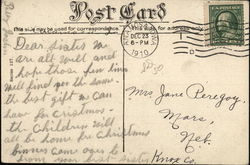 Post Card
This space may be used for correspondence
This side for address
DEC 23
6-PM
1910
Dear Sister we
are all well and
hope those few lines
will find you the same
the best gift we can
have for Cristmas
the Children will
all be home for Christmas
Mrs Jane Peregoy
Mars,
Neb.
Knox Co.
from your best sister